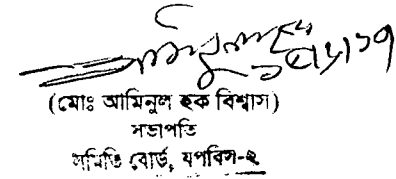 (মোঃ আমিনুল হক বিশ্বাস)
সভাপতি
সমিতি বোর্ড, যপবিস-২